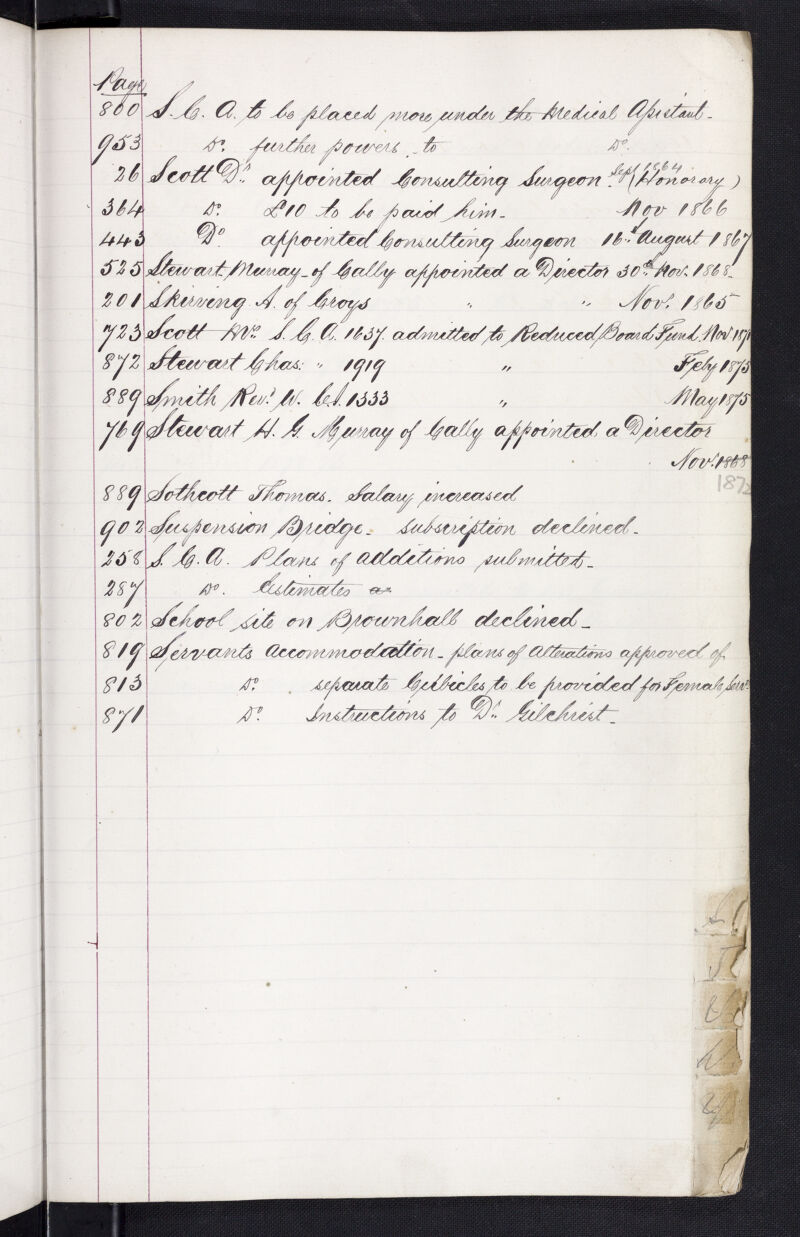 Page
800 S. C. A. to be placed more under the Medical Assistant -
953 Do. further powers to Do.
26 Scott Dr. appointed Consulting Surgeon. Sept 1864 (Honorary)
364 Do. £10 to be paid him - Nov 1866
443 Do appointed Consulting Surgeon 16th August 1867
525 Stewart, Murray - of Cally appointed a Director 30th Nov. 1868.
201 Skirving A. of Croys " " Nov. 1865
723 Scott S. C. A. 1637. admitted to Reduced Board Fund Nov 1871
872 Stewart Chas. " 1919 " Feby 1875
889 Smith Revd. W. 1333 " May 1875
769 Stewart H. G. Murray of Cally appointed a Director
Nov. 1868
1872
889 Sothcott Thomas. Salary increased
902 Suspension Bridge - subscription declined -
258 S. C. A. Plans of additions submitted -
287 Do. Estimates
802 School site on Brownhall declined -
819 Servants Accommodation - plans of Alterations approved of
813 Do. separate Cubicles to be provided for Female Servts
871 Do. Instructions to Dr. Gilchrist -